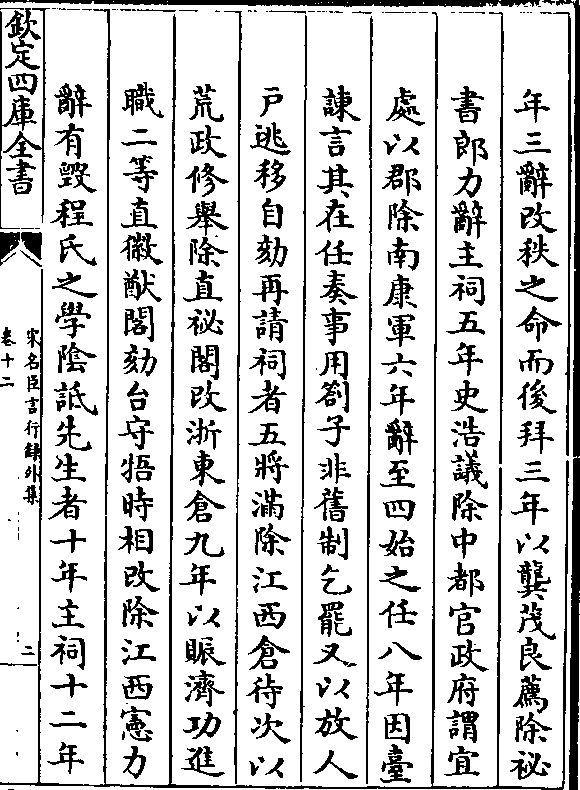 年三辭改秩之命而後拜三年以龔茂良薦除祕
書郎力辭主祠五年史浩議除中都官政府謂宜
處以郡除南康軍六年辭至四始之任八年因臺
諫言其在任奏事用劄子非舊制乞罷又以放人
戸逃移自劾再請祠者五將滿除江西倉待次以
荒政修舉除直祕閣改浙東倉九年以賑濟功進
職二等直徽猷閣劾台守牾時相改除江西憲力
辭有毁程氏之學陰詆先生者十年主祠十二年
欽定四庫全書
宋名臣言行録外集
卷十二
二